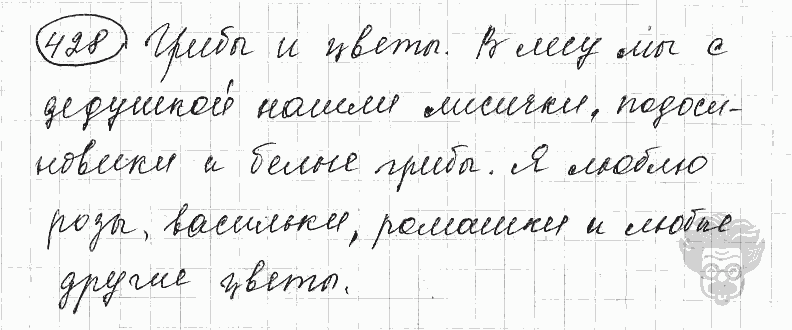 428. Грибы и цветы. В лесу мы с
дедушкой нашли лисички, подоси-
новики и белые грибы. Я люблю
розы, васильки, ромашки и любые
другие цветы.